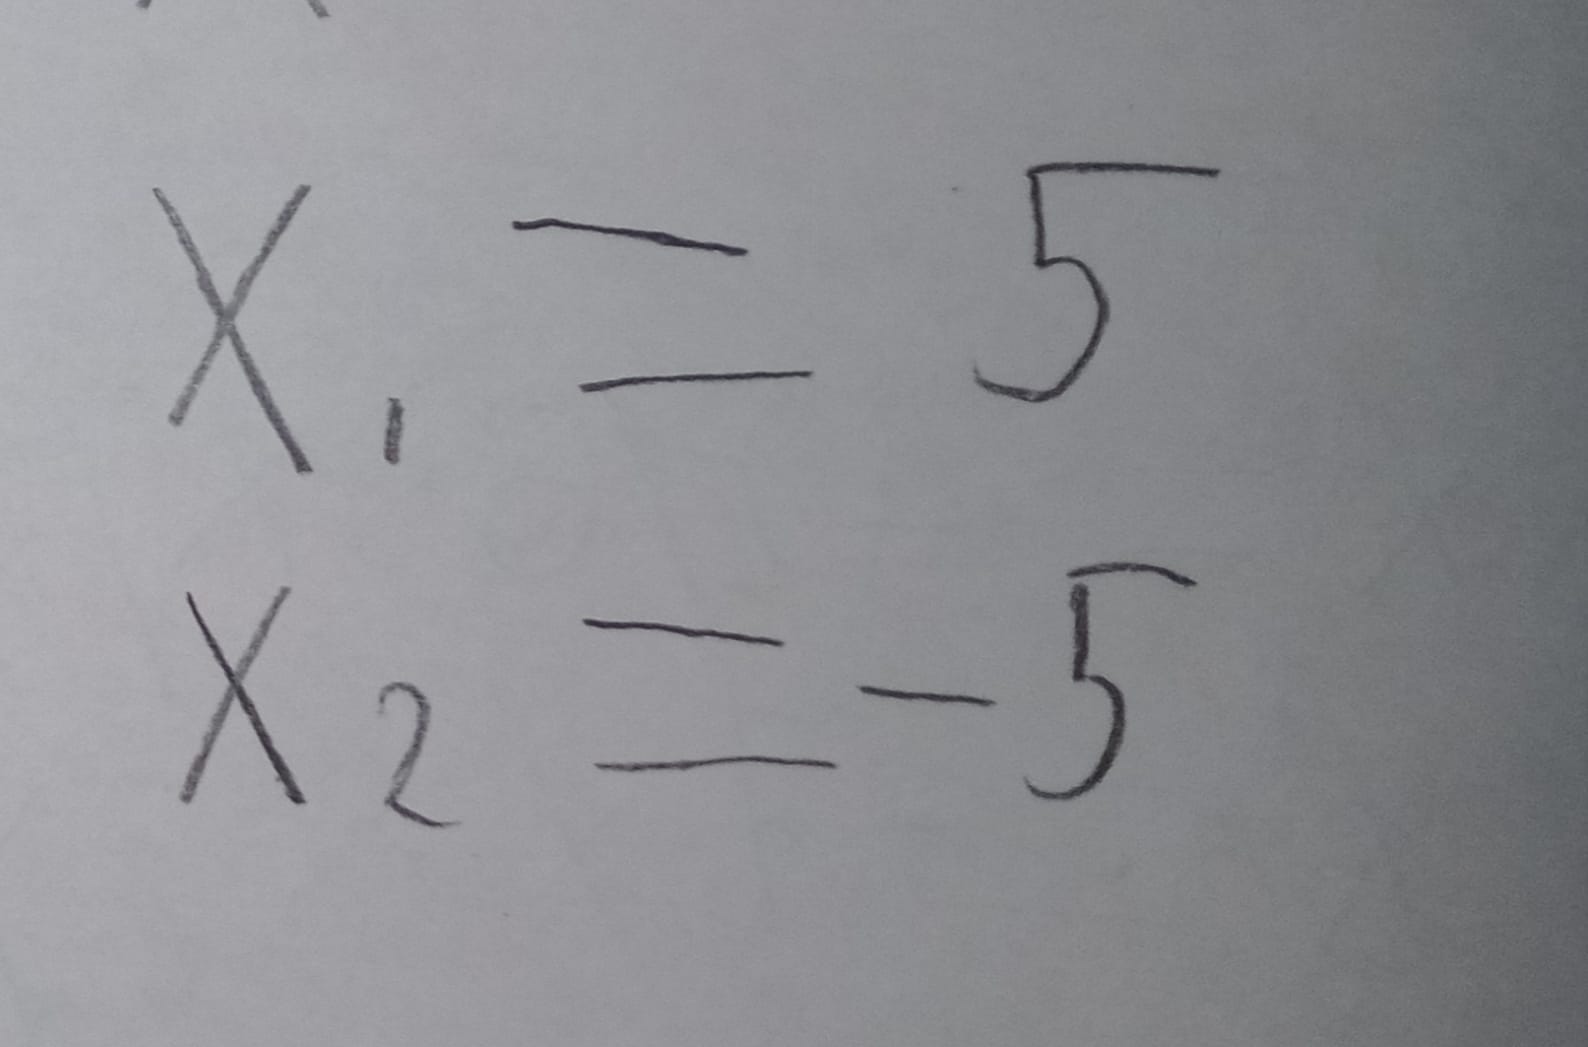 X₁ = 5
X₂ = -5